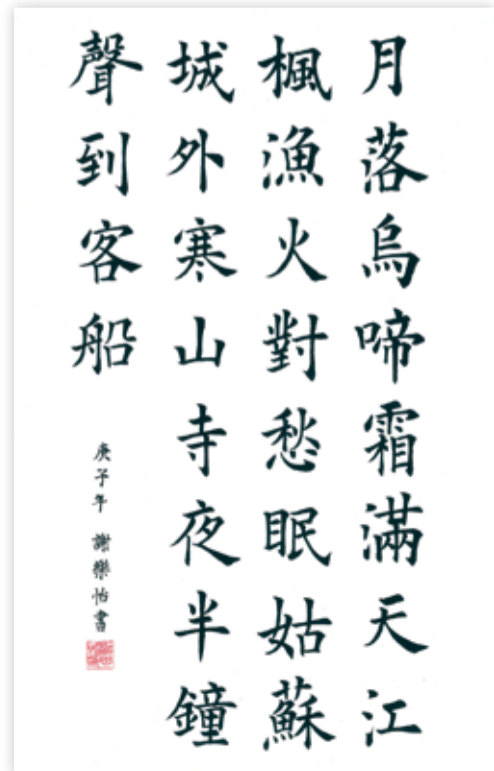 月落烏啼霜滿天江
楓漁火對愁眠姑蘇
城外寒山寺夜半鐘
聲到客船
庚子年 謝樂怡書